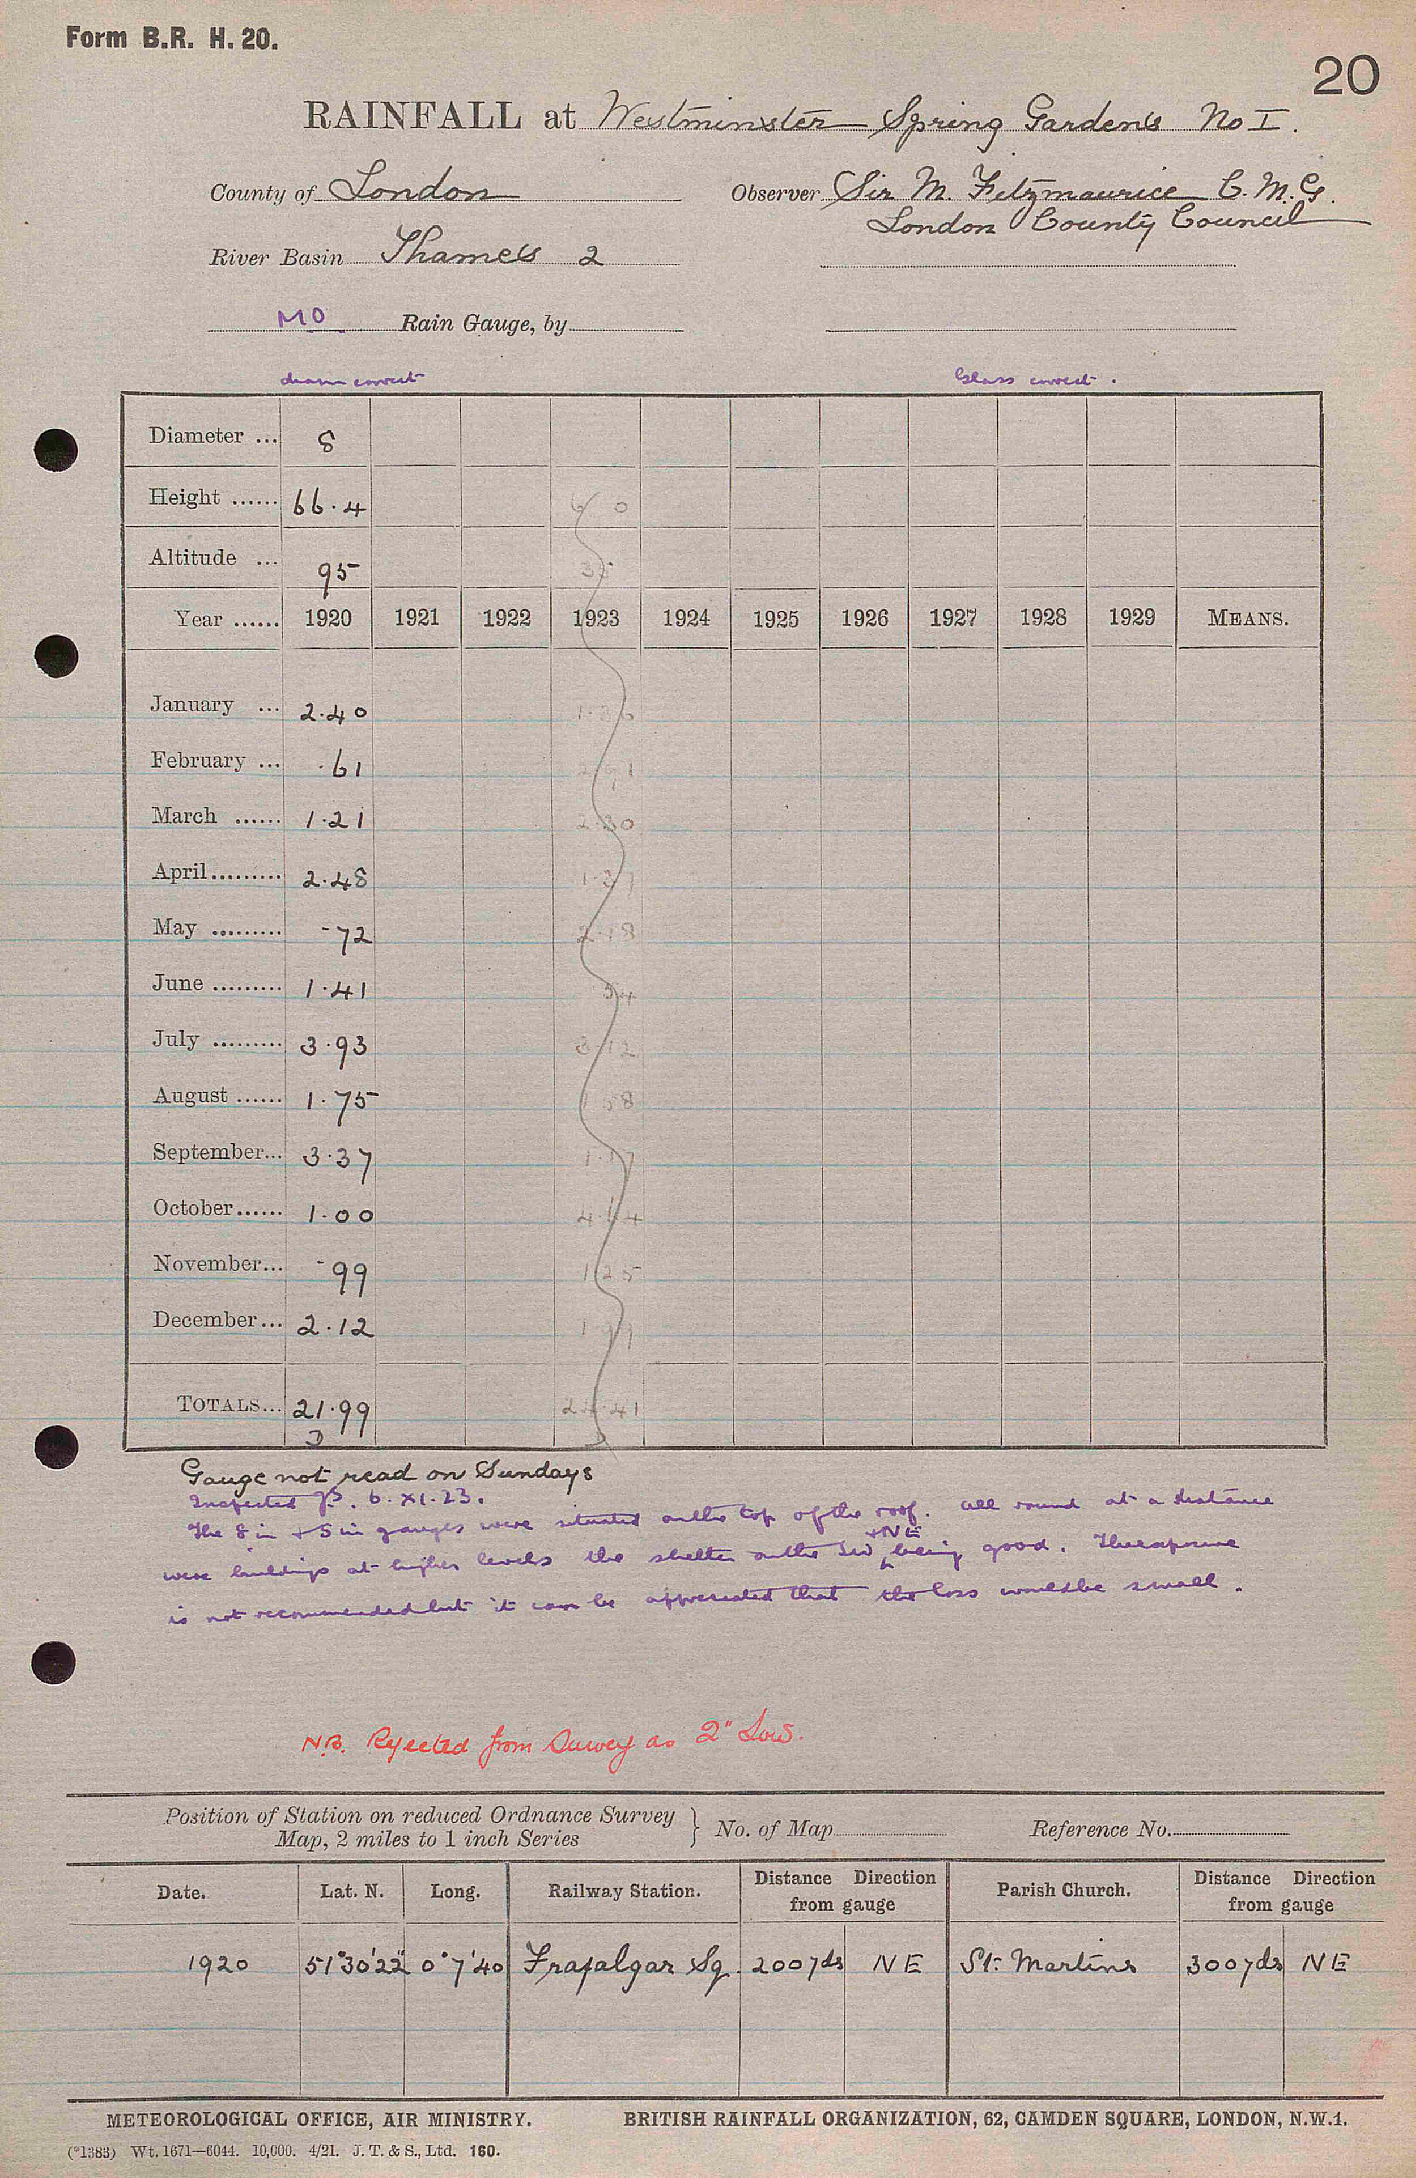 Form B.R. H. 20.
20
RAINFALL at Westminster Spring Gardens No I.
County of London Observer Sir M. Fitzmaurice C. M. G.
London County Council
River Basin Thames 2
MO Rain Gauge, by
diam correct Glass correct.
Diameter ... 8
Height ...... 66.4 6 0
Altitude ... 95 35
Year ...... 1920 1921 1922 1923 1924 1925 1926 1927 1928 1929 MEANS.
January ... 2.40
February ... .61
March ...... 1.21 2.30
April......... 2.48 1.37
May ......... .72 2.18
June ......... 1.41
July ......... 3.93 3.12
August ...... 1.75 58
September... 3.37
October...... 1.00
November... .99 1.25
December... 2.12
TOTALS... 21.99
Gauge not read on Sundays
Inspected 6.XI.23.
The 8 in + 5 in gauges were situated on the top of the roof. All round at a distance
+NE
were buildings at higher levels the shelter on the SW being good. The exposure
is not recommended but it can be appreciated that the loss would be small.
N.B. Rejected from Survey as 2" Low.
Position of Station on reduced Ordnance Survey
Map, 2 miles to 1 inch Series } No. of Map Reference No.
Date. Lat. N. Long. Railway Station. Distance Direction from gauge Parish Church. Distance Direction from gauge
1920 51°30'22" 0°7'40 Trafalgar Sq. 200yds NE St. Martins 300yds NE
METEOROLOGICAL OFFICE, AIR MINISTRY. BRITISH RAINFALL ORGANIZATION, 62, CAMDEN SQUARE, LONDON, N.W.1.
(*1383) Wt. 1671—6044. 10,000. 4/21. J. T. & S., Ltd. 160.